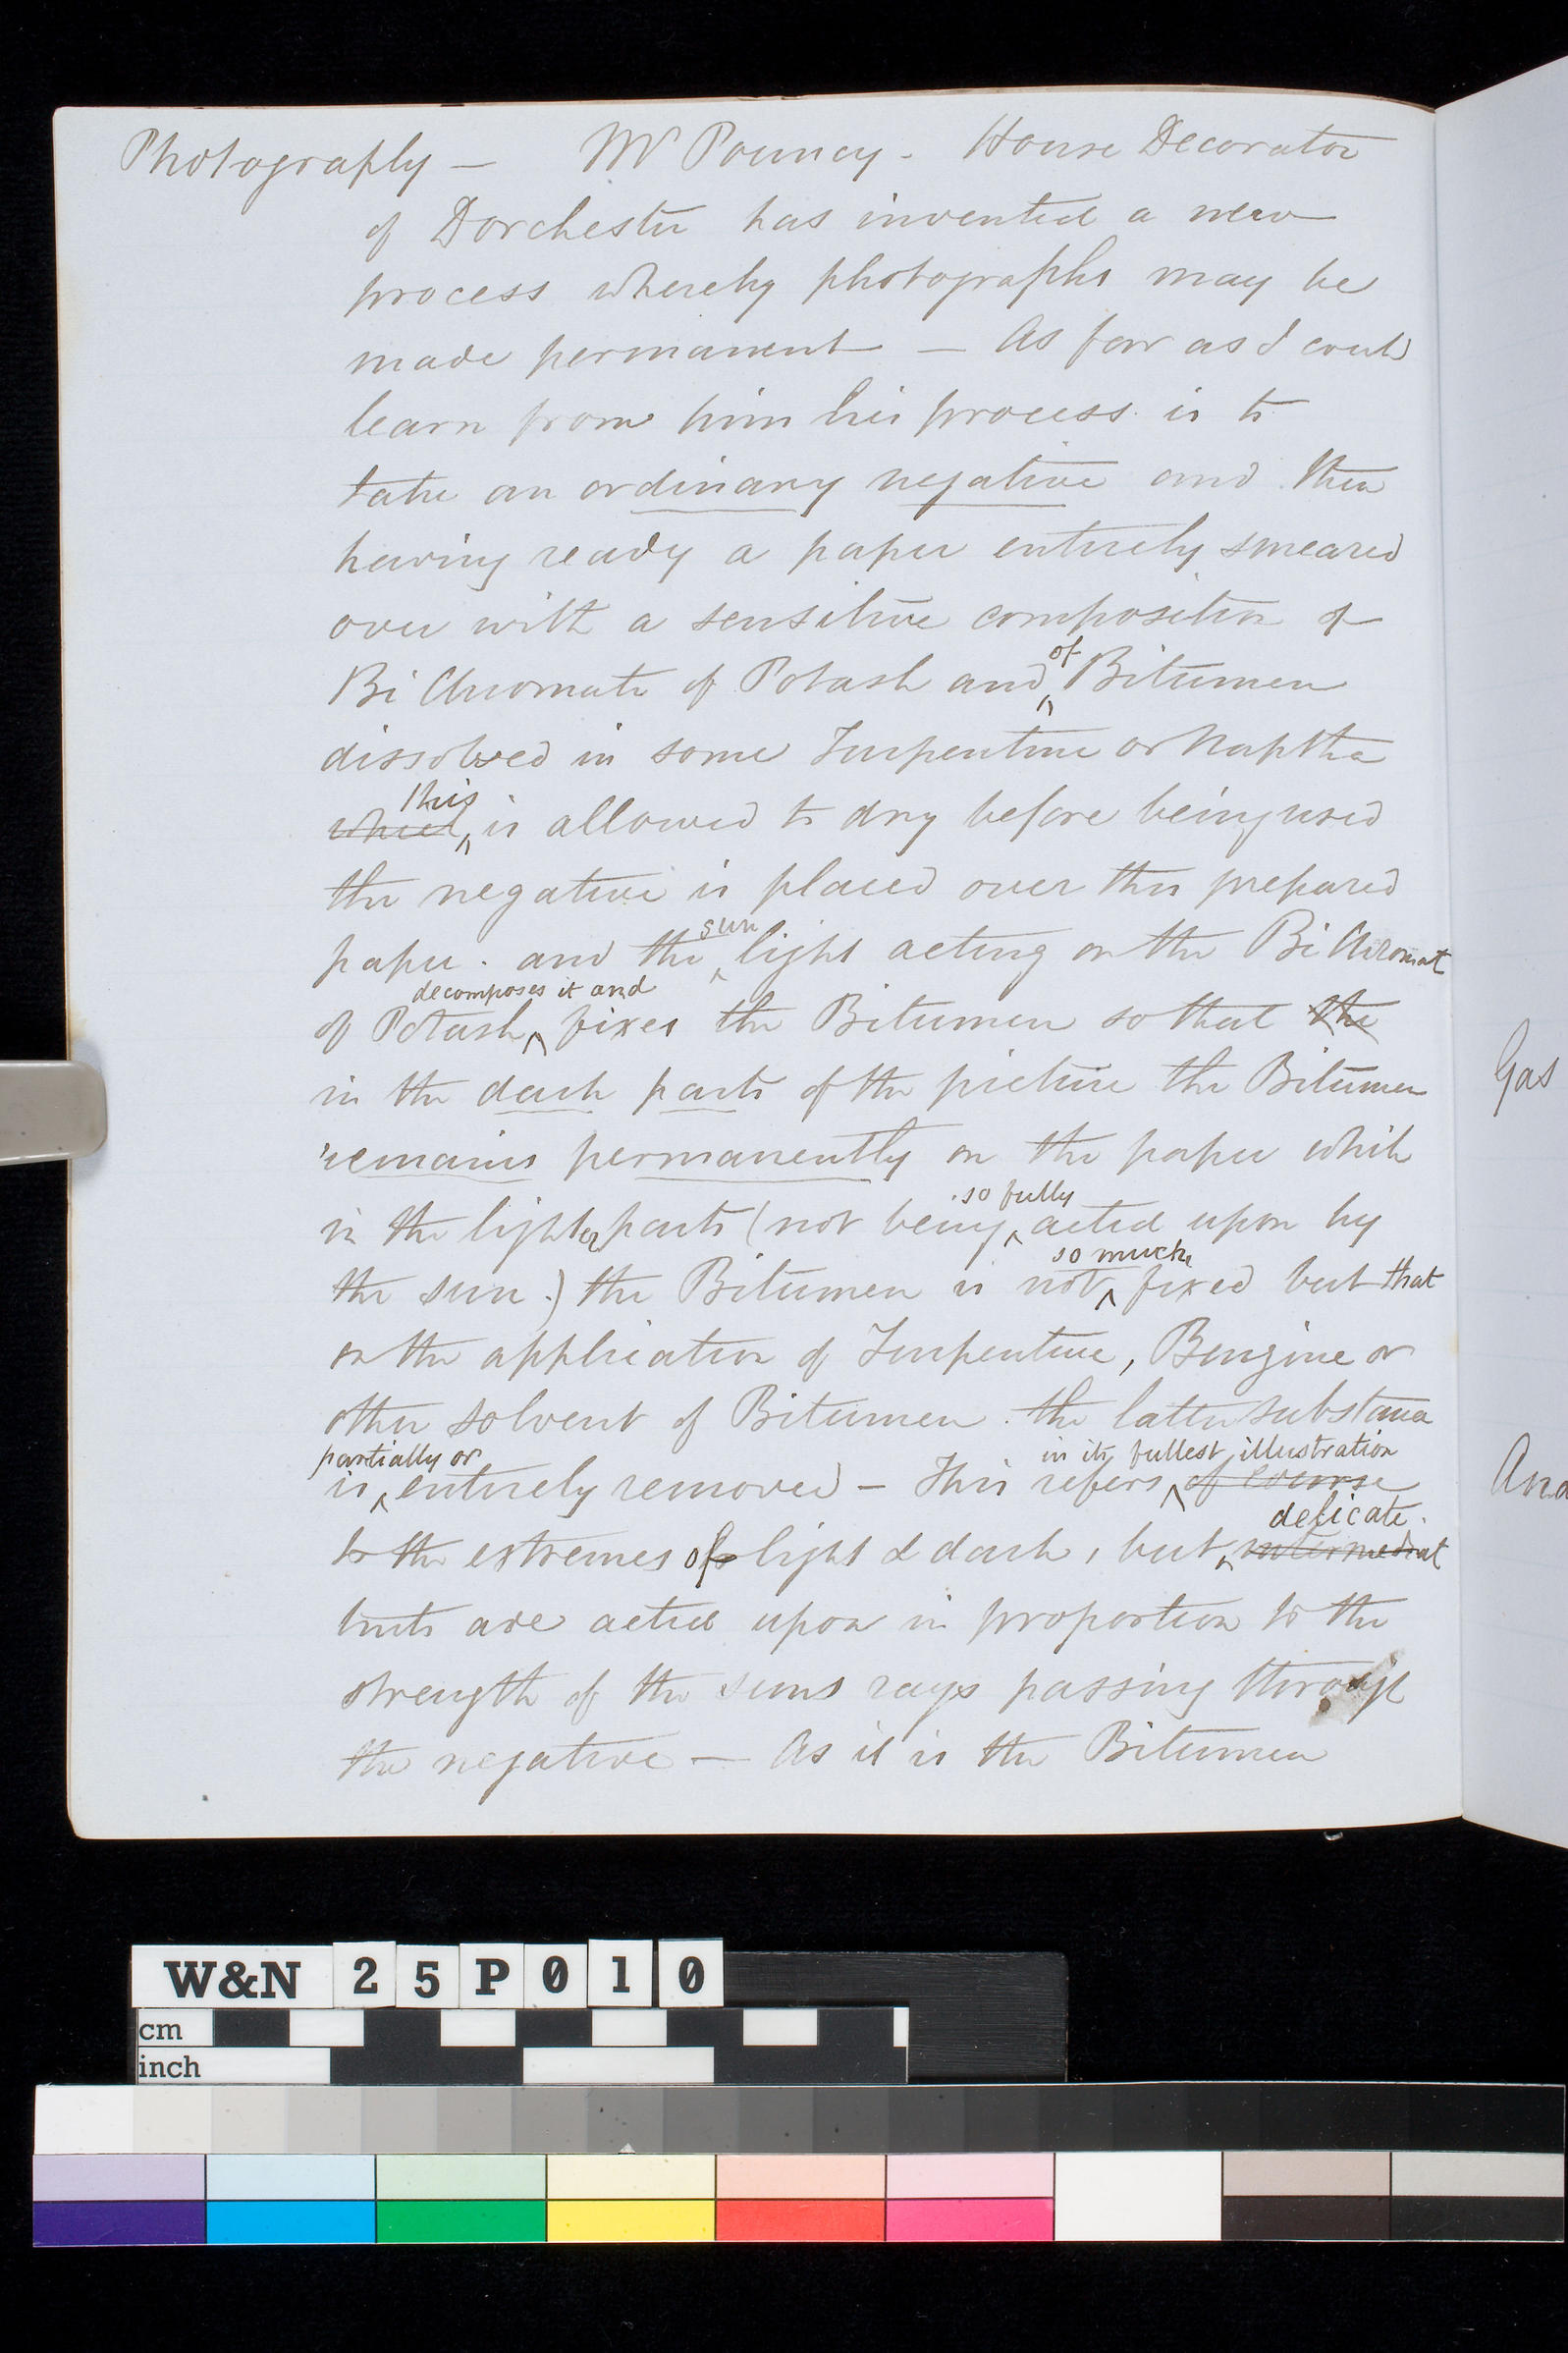 Photography — Mr Pouncy. House Decorator
of Dorchester has invented a new
process whereby photographs may be
made permanent — As far as I could
learn from him his process is to
take an ordinary negative and then
having ready a paper entirely smeared
over with a sensitive composition of
of
Bi Chromate of Potash and Bitumen
dissolved in some Turpentine or Naptha
this
which is allowed to dry before being used
the negative is placed over this prepared
sun
paper. and the light acting on the Bi Chromat
decomposes it and
of Potash fixes the Bitumen so that the
in the dark parts of the picture the Bitumen
remains permanently on the paper while
so fully
in the lighter parts (not being acted upon by
so much
the sun.) the Bitumen is not fixed but that
on the application of Turpentine, Benzine or
other solvent of Bitumen. the latter substance
partially or in its fullest illustration
is entirely removed — This refers of course
delicate.
to the extremes of light & dark, but intermediat
tints are acted upon in proportion to the
strength of the suns rays passing through
the negative — As it is the Bitumen
Gas
Ana
W&N 25P010
cm
inch